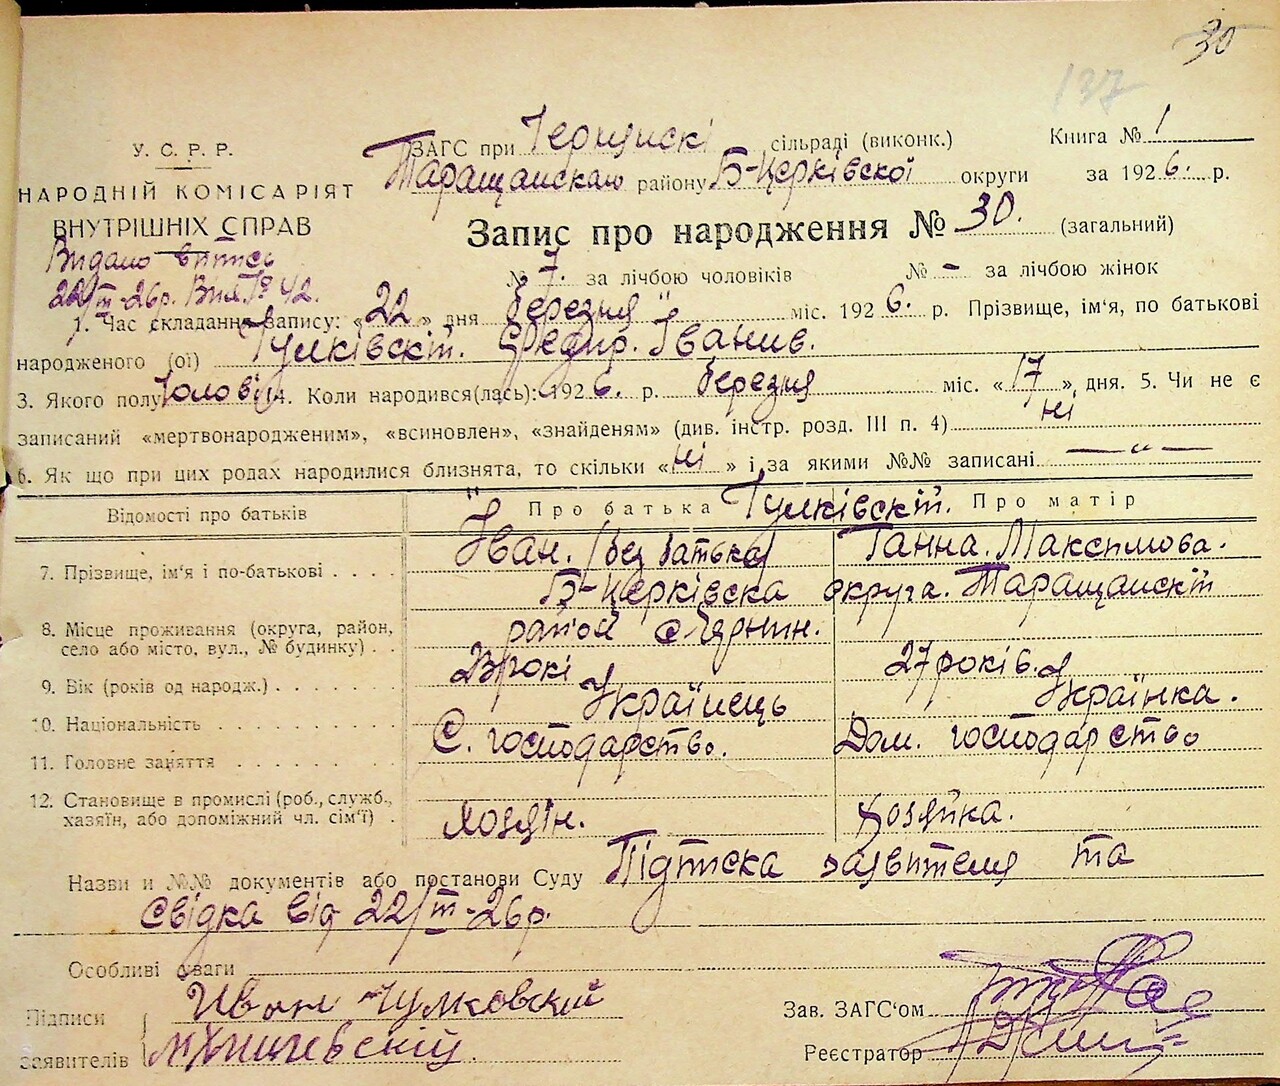 30
137
У. С. Р. Р.
НАРОДНІЙ КОМІСАРІЯТ
ВНУТРІШНІХ СПРАВ
Видано витпсь
22/III-26р. Вил. № 42.
ЗАГС при сільраді (виконк.) Книга № 1
Таращанскаю району Б-Церківскої округи за 1926. р.
Запис про народження № 30. (загальний)
№ 7. за лічбою чоловіків № - за лічбою жінок
1. Час складання запису: «22» дня березня міс. 1926. р. Прізвище, ім'я, по батькові
народженого (ої) Федир. Іванив.
3. Якого полу Чоловіч 4. Коли народився(лась): 1926. р. березня міс. «17» дня. 5. Чи не є
записаний «мертвонародженим», «всиновлен», «знайденям» (див. інстр. розд. III п. 4) ні
6. Як що при цих родах народилися близнята, то скільки «ні» і за якими №№ записані — „ —
Відомості про батьків Про батька Про матір
7. Прізвище, ім'я і по-батькові . . . . Іван. (без батька) Ганна. Максимова.
Б-Церківска округа. Таращанскій
8. Місце проживання (округа, район, район с.
село або місто, вул., № будинку) . .
9. Вік (років од народж.) . . . . . . . 23 рокі 27 років.
10. Національність . . . . . . . . Українець Українка.
11. Головне заняття . . . . . . . . С. господарство. Дом. господарство
12. Становище в промислі (роб., служб.,
хазяїн, або допоміжний чл. сім'ї) . Хозяїн. Хозяйка.
Назви и №№ документів або постанови Суду Підписка заявителя та
свідка від 22/III-26р.
Особливі уваги
Підписи Иван Чумковский
заявителів
Зав. ЗАГС'ом
Реєстратор